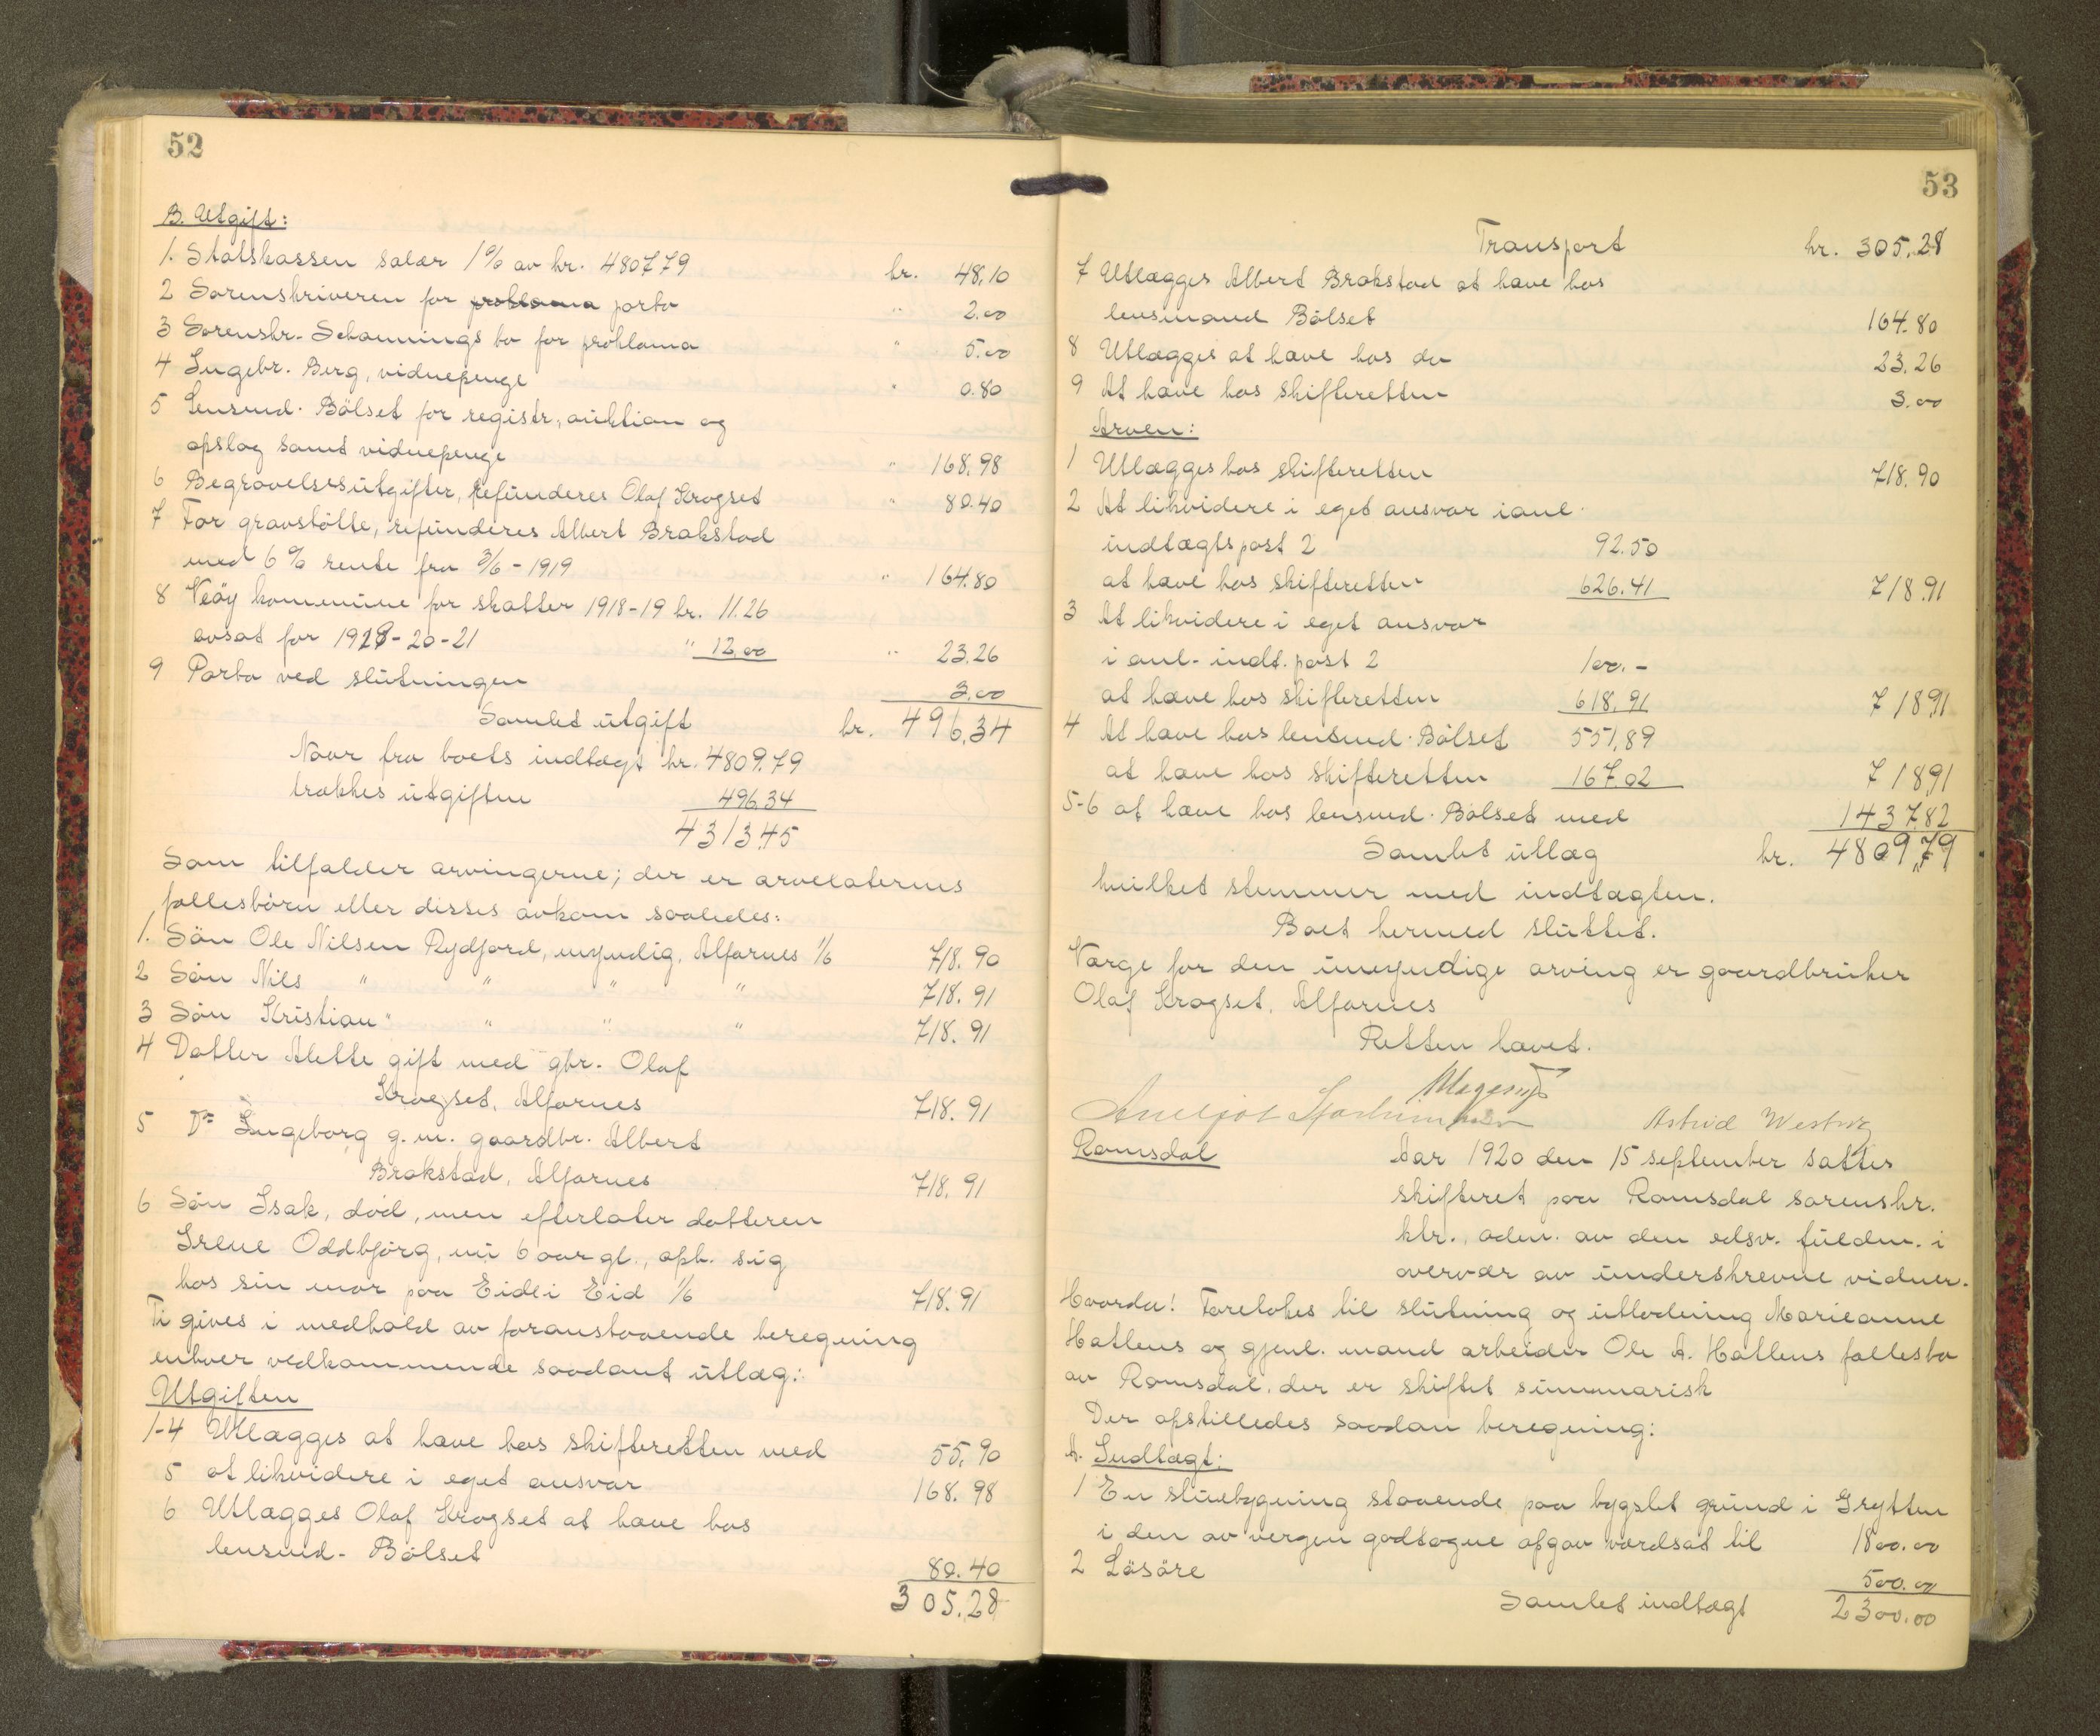 52
B. Utgift:
1. Statskassen salær 1% av kr. 480779 kr. 48,10
2 Sorenskriveren for proklama porto " 2.00
3 Sorenskr. Schannings bo for proklama " 5.00
4 Ingebr. Berg, vidnepenge " 0.80
5 Lensmd. Bölset for registr., auktion og
opslag samt vidnepenge " 168,98
6 Begravelsesutgifter, refunderes Olaf Krogset " 80.40
7 For gravstötte, refunderes Albert Brakstad
med 6% rente fra 3/6-1919 " 164.80
8 Veöy kommune for skatter 1918-19 kr. 11.26
avsat for 1919-20-21 " 12,00 " 23.26
9 Porto ved slutningen 3.00
Samlet utgift kr. 496,34
Naar fra boets indtægt kr. 4809.79
trækkes utgiften 496.34
4313.45
Som tilfalder arvingerne; der er arvelaternes
fællesbörn eller disses avkom saaledes:
1. Sön Ole Nilsen Rydjord, umyndig, Alfarnes 1/6 718.90
2 Sön Nils " " " " 718.91
3 Sön Kristian " " " " 718.91
4 Datter Alette gift med gbr. Olaf
Krogset, Alfarnes 718.91
5 Do Ingeborg g.m. gaardbr. Albert
Brakstad, Alfarnes 718.91
6 Sön Isak, död, men efterlater datteren
Irene Oddbjörg, nu 6 aar gl., oph. sig
hos sin mor paa Eide i Eid 1/6 718.91
Ti gives i medhold av foranstaaende beregning
enhver vedkommende saadant utlæg:
Utgiften
1-4 Utlægges at hæve hos skifteretten med 55,90
5 at likvidere i eget ansvar 168.98
6 Utlægges Olaf Krogset at hæve hos
lensmd. Bölset 80.40
305.28
53
Transport kr. 305.28
7 Utlægges Albert Brakstad at hæve hos
lensmand Bölset 164.80
8 Utlægges at hæve hos do 23.26
9 At hæve hos skifteretten 3.00
Arven:
1 Utlægges hos skifteretten 718.90
2 At likvidere i eget ansvar i anl.
indtægtspost 2 92.50
at hæve hos skifteretten 626.41 718.91
3 At likvidere i eget ansvar
i anl. indt. post 2 100.-
at hæve hos skifteretten 618.91 718,91
4 At hæve hos lensmd. Bölset 551,89
at hæve hos skifteretten 167.02 718,91
5-6 at hæve hos lensmd. Bölset med 1437.82
Samlet utlæg kr. 4809,79
hvilket stemmer med indtægten.
Boet hermed sluttet.
Værge for den umyndige arving er gaardbruker
Olaf Krogset, Alfarnes
Retten hævet.
Astrid Westvig
Romsdal Aar 1920 den 15 september sattes
skifteret paa Romsdal sorenskr.
ktr., adm. av den edsv. fuldm. i
overvær av underskrevne vidner.
Hvorda! Foretokes til slutning og utlodning Marieanne
Hatlens og gjenl. mand arbeider Ole A. Hatlens fællesbo
av Romsdal, der er skiftet summarisk
Der opstilledes saadan beregning:
A. Indtægt:
1 En stuebygning staaende paa bygslet grund i Grytten
i den av vergen godtagne opgav værdsat til 1800.00
2 Lösöre 500.00
Samlet indtægt 2300.00